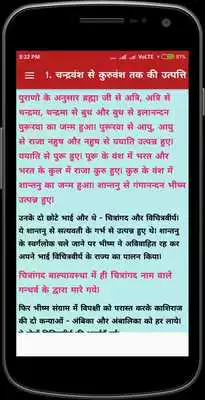 5:22 PM VoLTE 81%
1. चन्द्रवंश से कुरुवंश तक की उत्पत्ति
पुराणो के अनुसार ब्रह्मा जी से अत्रि, अत्रि से
चन्द्रमा, चन्द्रमा से बुध और बुध से इलानन्दन
पुरूरवा का जन्म हुआ। पुरूरवा से आयु, आयु
से राजा नहुष और नहुष से ययाति उत्पन्न हुए।
ययाति से पुरू हुए। पूरू के वंश में भरत और
भरत के कुल में राजा कुरु हुए। कुरु के वंश में
शान्तनु का जन्म हुआ। शान्तनु से गंगानन्दन भीष्म
उत्पन्न हुए।
उनके दो छोटे भाई और थे - चित्रांगद और विचित्रवीर्य।
ये शान्तनु से सत्यवती के गर्भ से उत्पन्न हुए थे। शान्तनु
के स्वर्गलोक चले जाने पर भीष्म ने अविवाहित रह कर
अपने भाई विचित्रवीर्य के राज्य का पालन किया।
चित्रांगद बाल्यावस्था में ही चित्रांगद नाम वाले
गन्धर्व के द्वारा मारे गये।
फिर भीष्म संग्राम में विपक्षी को परास्त करके काशिराज
की दो कन्याओं - अंबिका और अंबालिका को हर लाये।